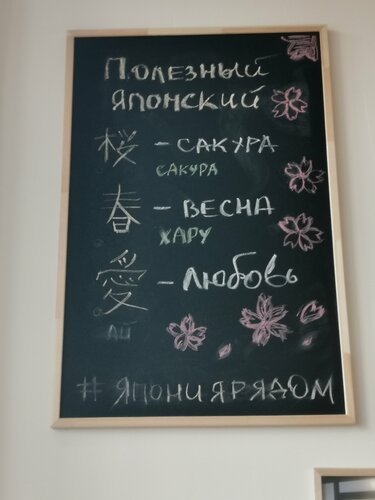 Полезный
японский
桜 - сакура
сакура
春 - весна
хару
愛 - любовь
ай
#японияРядом